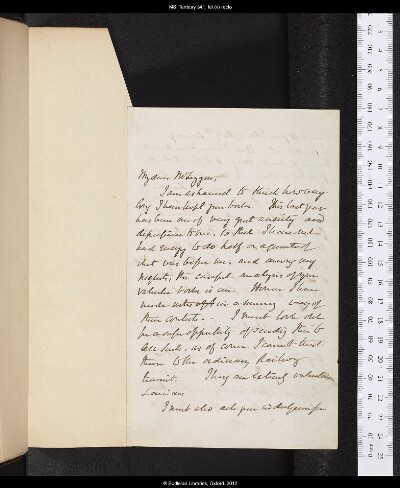 MS. Tenbury 341, fol. (i) recto
My dear Mr Leggon,
I am ashamed to think how very
long I have kept your books. This last year
has been one of very great anxiety and
depression to me, so that I have not
had energy to do half or a quarter of
what was before me, and among my
neglects, the careful analysis of your
valuable books is one. However I have
made notes in a summary way of
their contents. — I must look out
for a safe opportunity of sending them to
as of course I cannot trust
them to the ordinary Railway
transit. They are extremely valuable
&
I must also ask your indulgence for
© Bodleian Libraries, Oxford, 2012